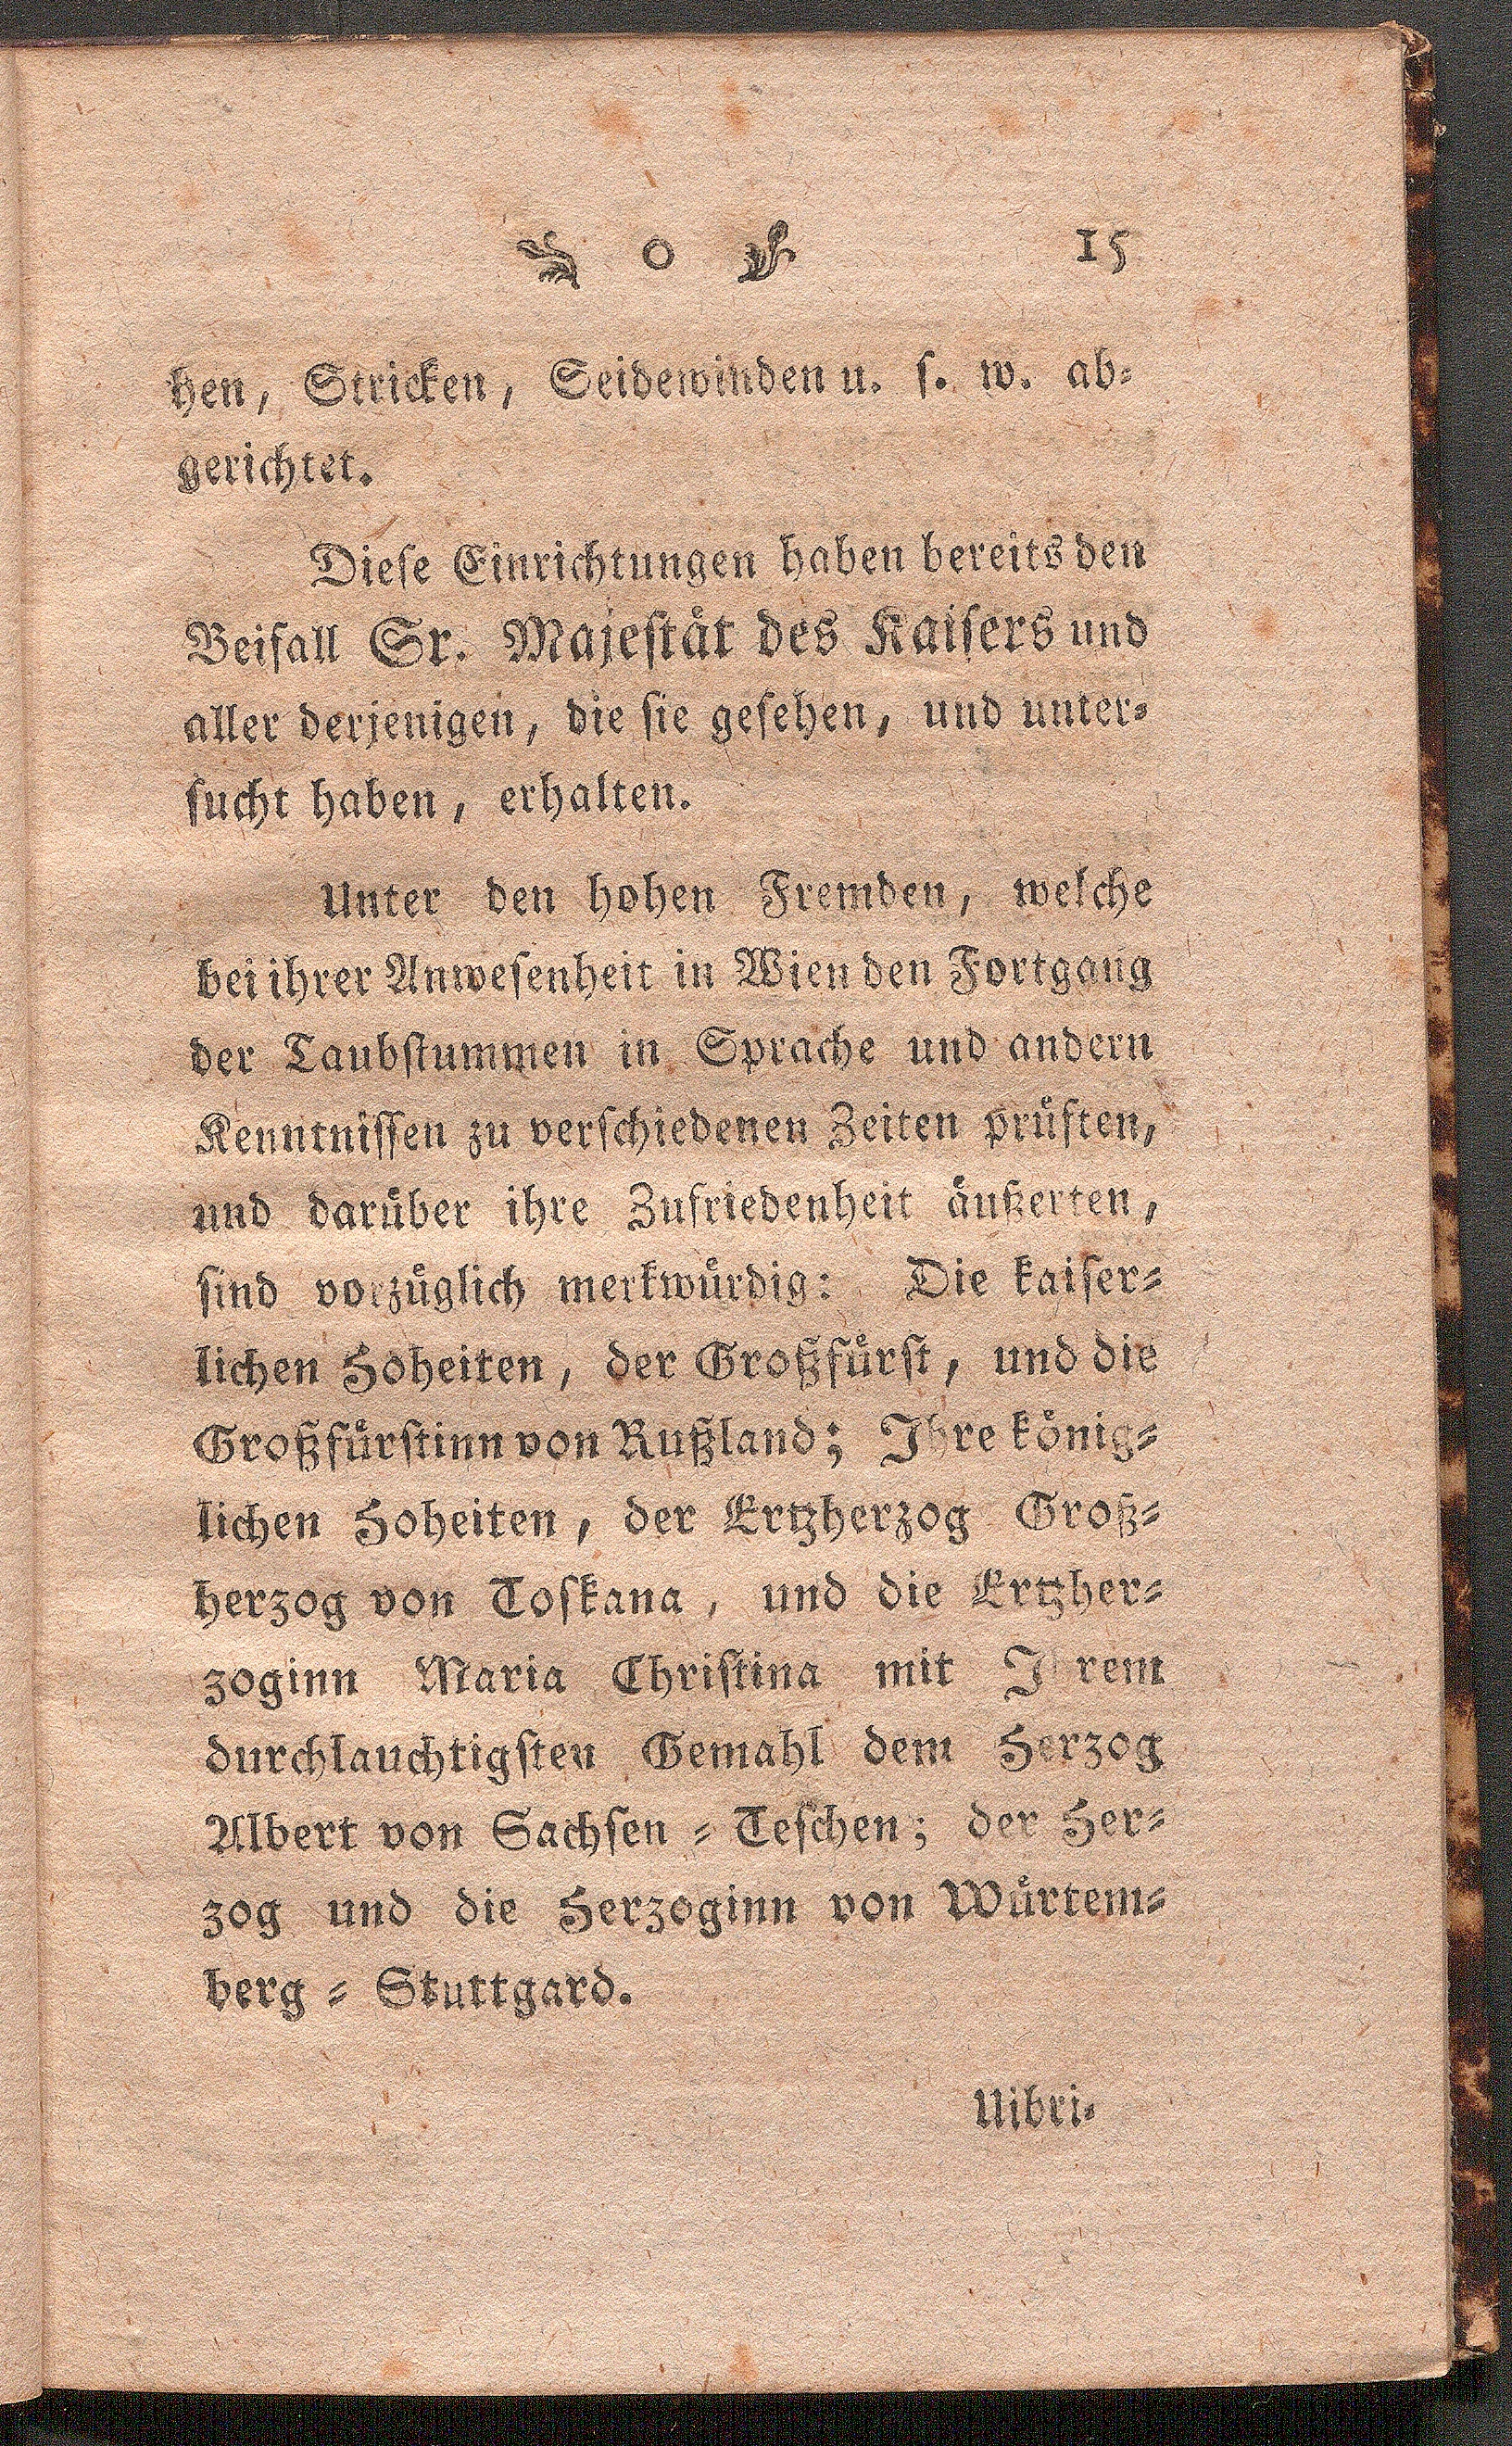 o 15
hen, Stricken, Seidewinden u. s. w. ab=
gerichtet.
Diese Einrichtungen haben bereits den
Beifall Sr. Majestät des Kaisers und
aller derjenigen, die sie gesehen, und unter=
sucht haben, erhalten.
Unter den hohen Fremden, welche
bei ihrer Anwesenheit in Wien den Fortgang
der Taubstummen in Sprache und andern
Kenntnissen zu verschiedenen Zeiten prüften,
und darüber ihre Zufriedenheit äußerten,
sind vorzüglich merkwürdig: Die kaiser=
lichen Hoheiten, der Großfürst, und die
Großfürstinn von Rußland; Ihre könig=
lichen Hoheiten, der Ertzherzog Groß=
herzog von Toskana, und die Ertzher=
zoginn Maria Christina mit Ihrem
durchlauchtigsten Gemahl dem Herzog
Albert von Sachsen = Teschen; der Her=
zog und die Herzoginn von Würtem=
berg = Stuttgard.
Uibri=